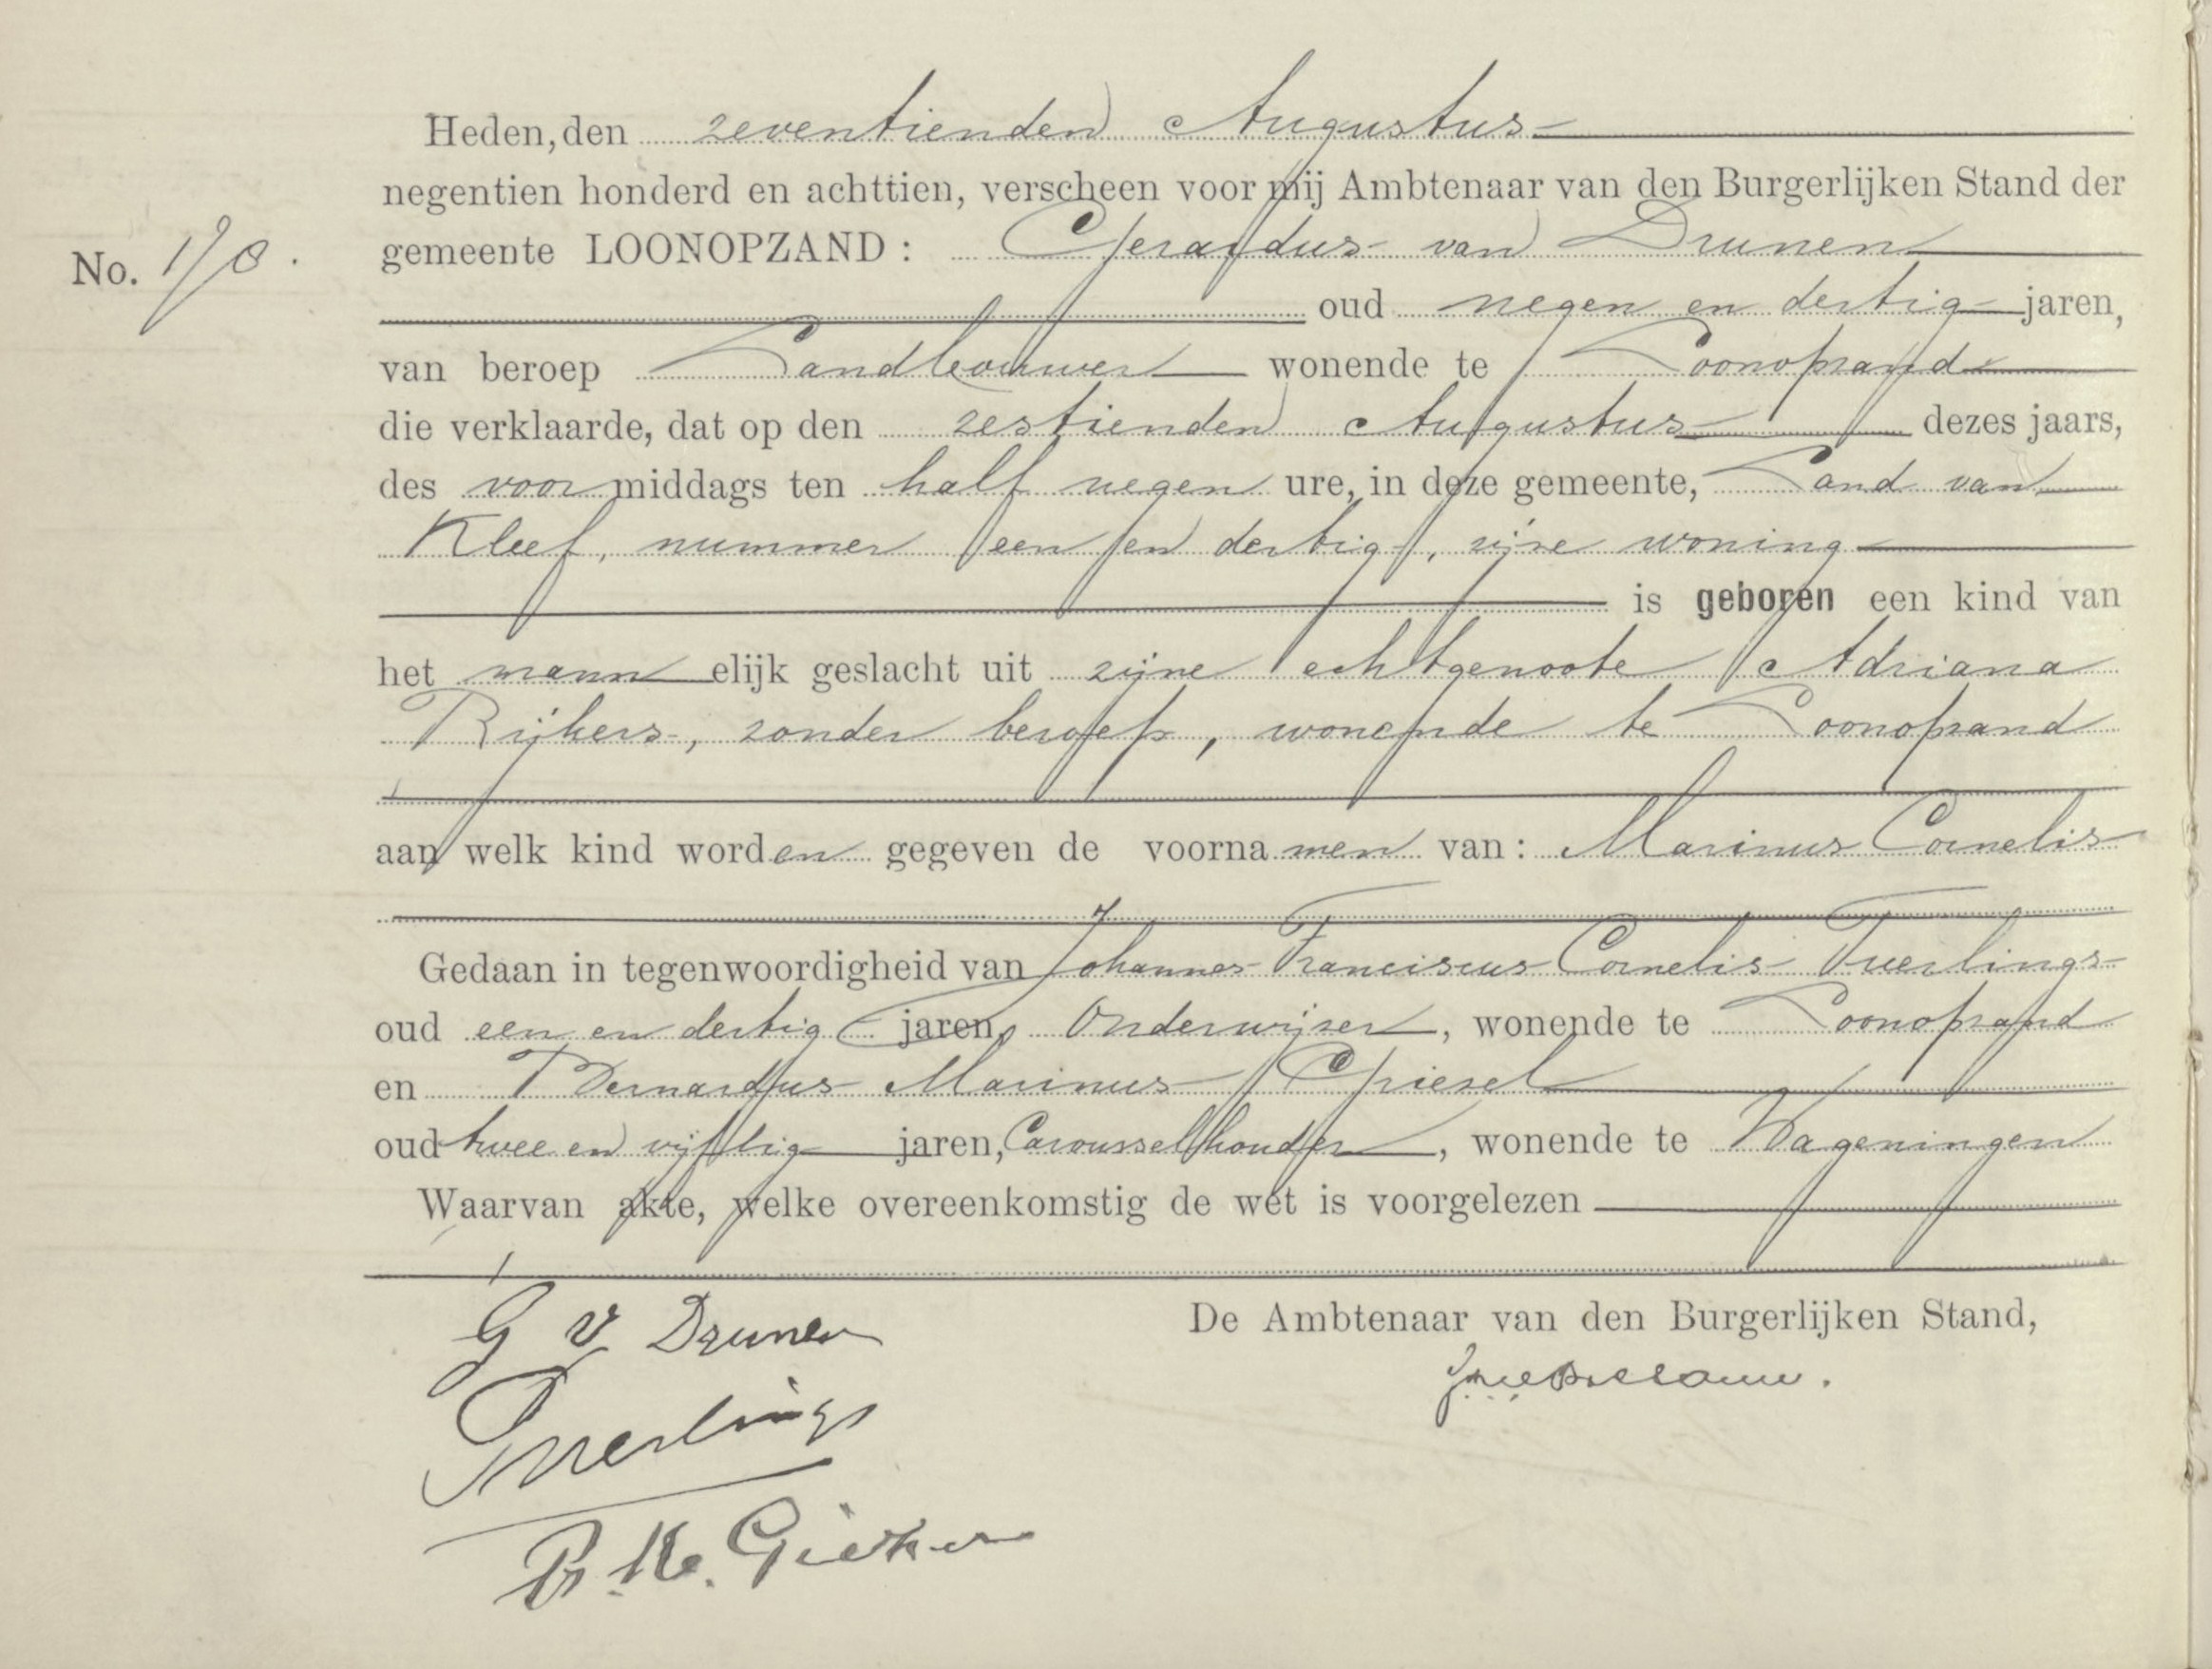 Heden, den zeventienden Augustus
negentien honderd en achttien, verscheen voor mij Ambtenaar van den Burgerlijken Stand der
No. 170.
gemeente LOONOPZAND: Gerardus van Drunen
oud negen en dertig jaren,
van beroep Landbouwer wonende te Loonopzand
die verklaarde, dat op den zestienden Augustus dezes jaars,
des voor middags ten half negen ure, in deze gemeente, Land van
Kleef, nummer een en dertig, zijne woning
is geboren een kind van
het mann elijk geslacht uit zijne echtgenoote Adriana
Rijkers, zonder beroep, wonende te Loonopzand
aan welk kind worden gegeven de voornamen van: Marinus Cornelis
Gedaan in tegenwoordigheid van Johannes Franciscus Cornelis Tuerlings
oud een en dertig jaren, Onderwijzer, wonende te Loonopzand
en Bernardus Marinus
oud twee en vijftig jaren, Carousselhouder, wonende te Wageningen
Waarvan akte, welke overeenkomstig de wet is voorgelezen
De Ambtenaar van den Burgerlijken Stand,
G V Drunen
Tuerlings
B. M.